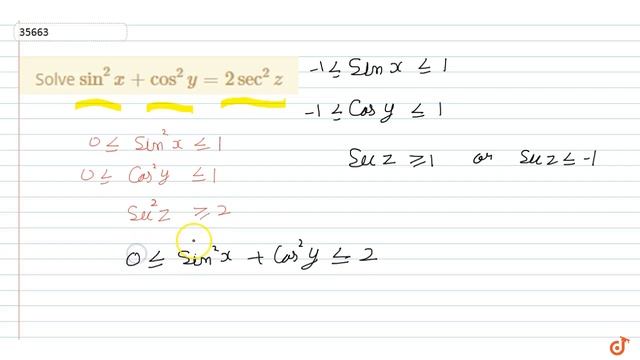 35663
Solve sin² x + cos² y = 2 sec² z
-1 ≤ Sin x ≤ 1
-1 ≤ Cos y ≤ 1
0 ≤ Sin² x ≤ 1
0 ≤ Cos² y ≤ 1
Sec z ≥ 1 or Sec z ≤ -1
Sec² z ≥ 2
0 ≤ Sin² x + Cos² y ≤ 2
doubtnut